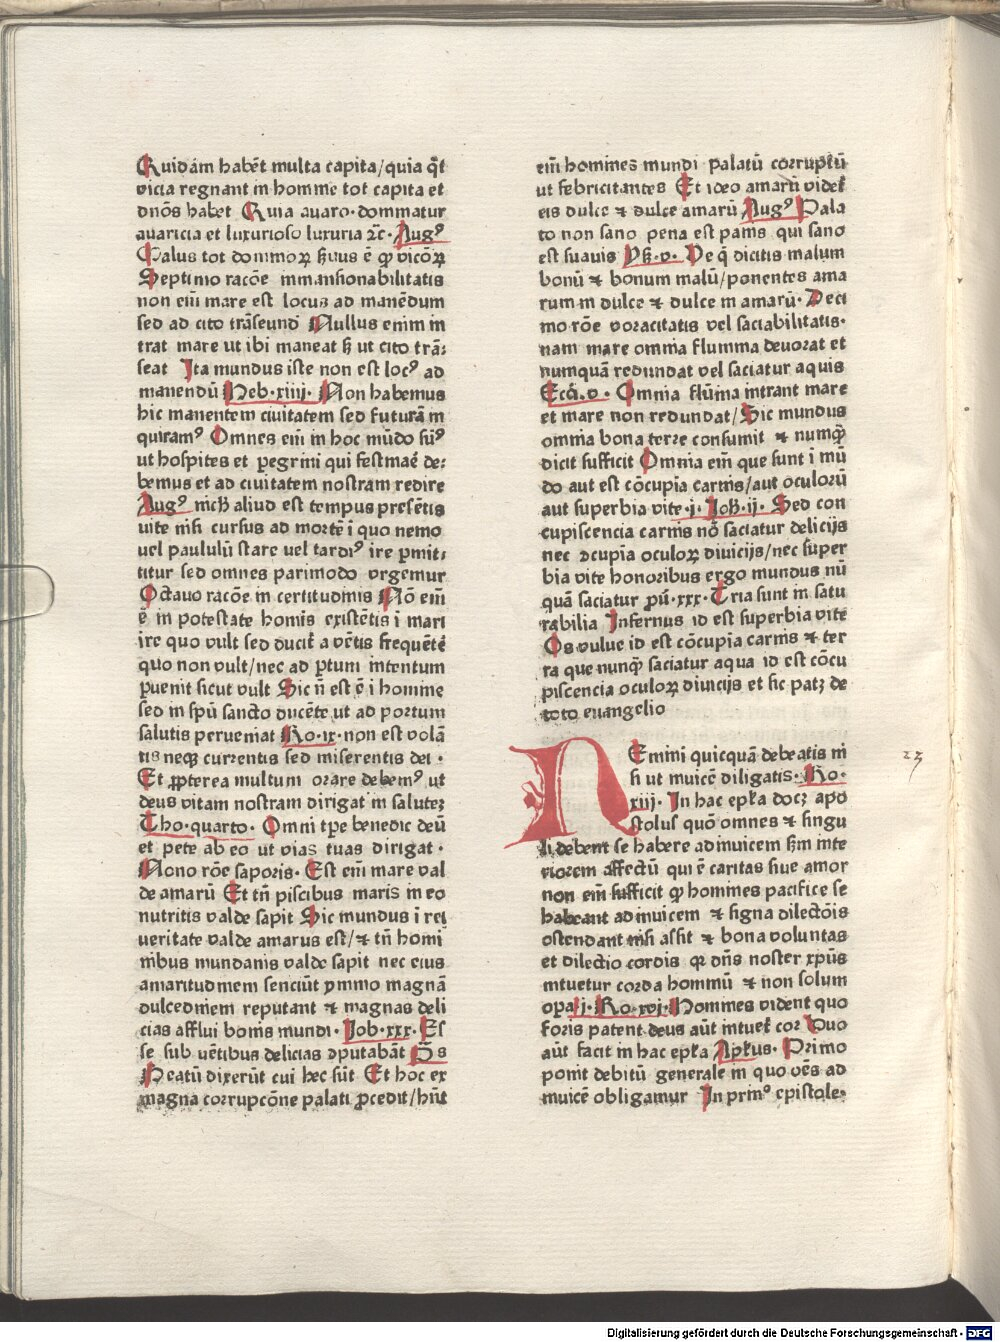 Quidam habēt multa capita/quia qͦt
vicia regnant in homine tot capita et
dn̄os habet Quia auaro·dominatur
auaricia et luxurioso luxuria ⁊c̄·Augꝰ
Malus tot dominoꝝ ẜuus ē qͦ vicōꝝ
Septimo racōe immansionabilitatis
non eīm mare est locus ad manēdum
sed ad cito trāseundū Nullus enim in
trat mare ut ibi maneat ẜ ut cito trā⸗
seat Ita mundus iste non est locꝰ ad
manendū Heb·xiiij· Non habemus
hic manentem ciuitatem sed futurā in
quiramꝰ Omnes eīm in hoc mūdo sūꝰ
ut hospites et pegrini qui festinaē de⸗
bemus et ad ciuitatem nostram redire
Augꝰ nichil aliud est tempus presētis
uite nisi cursus ad mortē ī quo nemo
uel paululū stare uel tardiꝰ ire pmit⸗
titur sed omnes parimodo vrgemur
Octauo racōe in certitudinis Nō eīm
ē in potestate homīs existētis ī mari
ire quo vult sed ducit̄ a vētis frequētē
quo non vult/nec ad ptum intentum
puenit sicut vult Sic n̄ est ē ī homine
sed in sp̄u sancto ducēte ut ad portum
salutis perueniat Ro·ix·non est volā
tis neqꝫ currentis sed miserentis dei·
Et ꝓpterea multum orare debemꝰ ut
deus vitam nostram dirigat in salutez
Tho·quarto· Omni tp̄e benedic deū
et pete ab eo ut vias tuas dirigat·
Nono rōe saporis· Est eīm mare val
de amarū Et tn̄ piscibus maris in eo
nutritis valde sapit Sic mundus ī rei
ueritate valde amarus est/⁊ tn̄ homi
nibus mundanis valde sapit nec eius
amaritudinem senciūt ymmo magnā
dulcedinem reputant ⁊ magnas deli
cias afflui bonis mundi· Job·xxx·Es
se sub vētibus delicias ɔputabāt Ps
Beatū dixerūt cui hec sūt Et hoc ex
magna corrupcōne palati pcedit/hn̄t
eīm homines mundi palatū corruptū
ut febricitantes Et ideo amarū videt̄
eis dulce ⁊ dulce amarū Augꝰ Pala
to non sano pena est panis qui sano
est suauis Ys·v· Ve q̄ dicitis malum
bonū ⁊ bonum malū/ponentes ama
rum in dulce ⁊ dulce in amarū· Deci
mo rōe voracitatis vel saciabilitatis·
nam mare omnia flumina deuorat et
numquā redundat vel saciatur aquis
Ecci·v· Omnia flūina intrant mare
et mare non redundat/Sic mundus
omnia bona terre consumit ⁊ numqͣ
dicit sufficit Omnia eīm que sunt ī mū
do aut est cōcupia carnis/aut oculorū
aut superbia vite·j· Joh·ij· Sed con
cupiscencia carnis nō saciatur delicijs
nec ɔcupia oculoꝝ diuicijs/nec super
bia vite honoribus ergo mundus nū
quā saciatur pū·xxx·Tria sunt in satu
rabilia Infernus id est superbia vite
Os vulue id est cōcupia carnis ⁊ ter
ra que nunqͣ saciatur aqua id est cōcu
piscencia oculoꝝ diuicijs et sic patꝫ de
toto euangelio
NEmini quicquā debeatis ni
si ut inuicē diligatis·Ro·
xiij· In hac epl̄a docꝫ apo
stolus quō omnes ⁊ singu
li debent se habere adinuicem ẜm inte
riorem affectū qui ē caritas siue amor
non eīm sufficit qͥ homines pacifice se
habeant adinuicem ⁊ signa dilectōis
ostendant nisi assit ⁊ bona voluntas
et dilectio cordis qꝛ dn̄s noster xp̄us
intuetur corda hominū ⁊ non solum
opa·j·Ro·xvj·Homines vident quo
foris patent deus aūt intuet̄ cor Duo
aūt facit in hac epl̄a Apl̄us· Primo
ponit debitū generale in quo oēs ad
inuicē obligamur In primꝰ epistole·
23
Digitalisierung gefördert durch die Deutsche Forschungsgemeinschaft - DFG